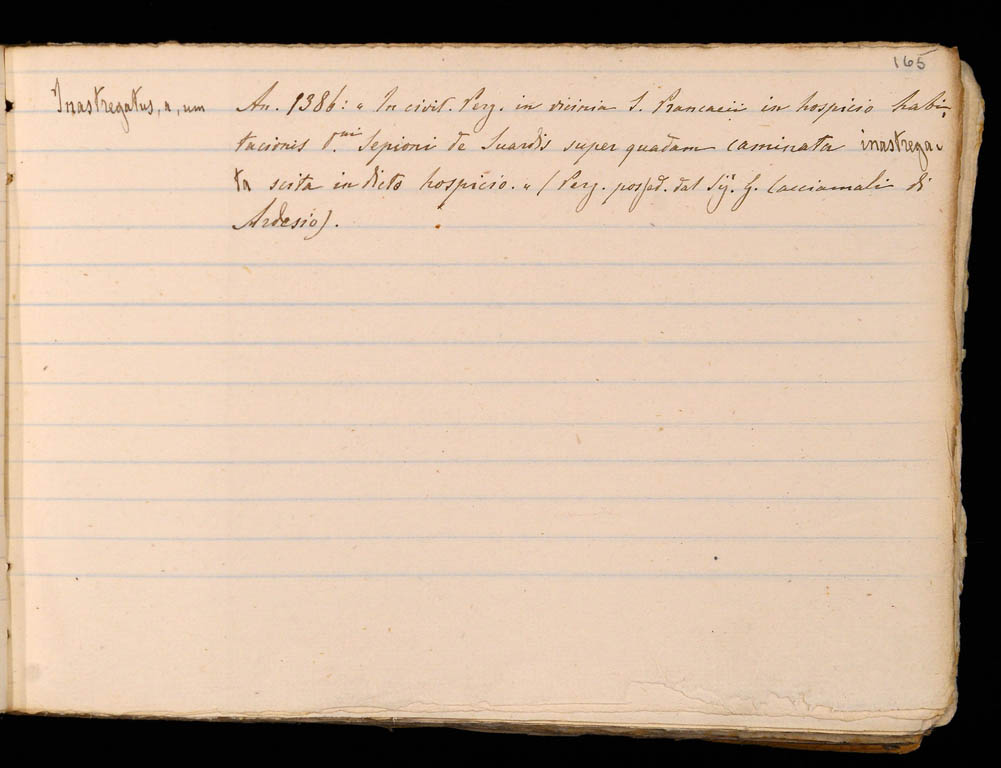 165
Inastregatus, a, um An. 1386: « In civit. Perg. in vicinia S. Pancracii in hospicio habi-
tacionis d.ni Sepioni de Suardis super quadam caminata inastrega-
ta scita in dicto hospicio. » (Perg. possed. dal Sig. G. Cacciamali di
Ardesio).